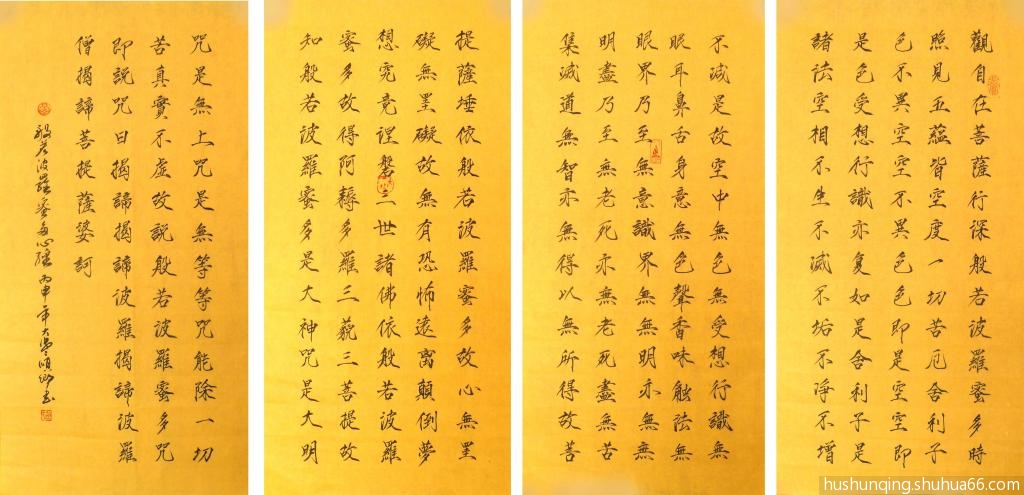 觀自在菩薩行深般若波羅蜜多時
照見五蘊皆空度一切苦厄舍利子
色不異空空不異色色即是空空即
是色受想行識亦复如是舍利子是
諸法空相不生不滅不垢不淨不增
不減是故空中無色無受想行識無
眼耳鼻舌身意無色聲香味觸法無
眼界乃至無意識界無無明亦無無
明盡乃至無老死亦無老死盡無苦
集滅道無智亦無得以無所得故菩
提薩埵依般若波羅蜜多故心無罣
礙無罣礙故無有恐怖遠离顛倒夢
想究竟涅磐三世諸佛依般若波羅
蜜多故得阿耨多羅三藐三菩提故
知般若波羅蜜多是大神咒是大明
咒是無上咒是無等等咒能除一切
苦真實不虛故說般若波羅蜜多咒
即說咒曰揭諦揭諦彼羅揭諦波羅
僧揭諦菩提薩婆訶
般若波羅蜜多心經丙申年大雪順卿书
hushunqing.shuhua66.com